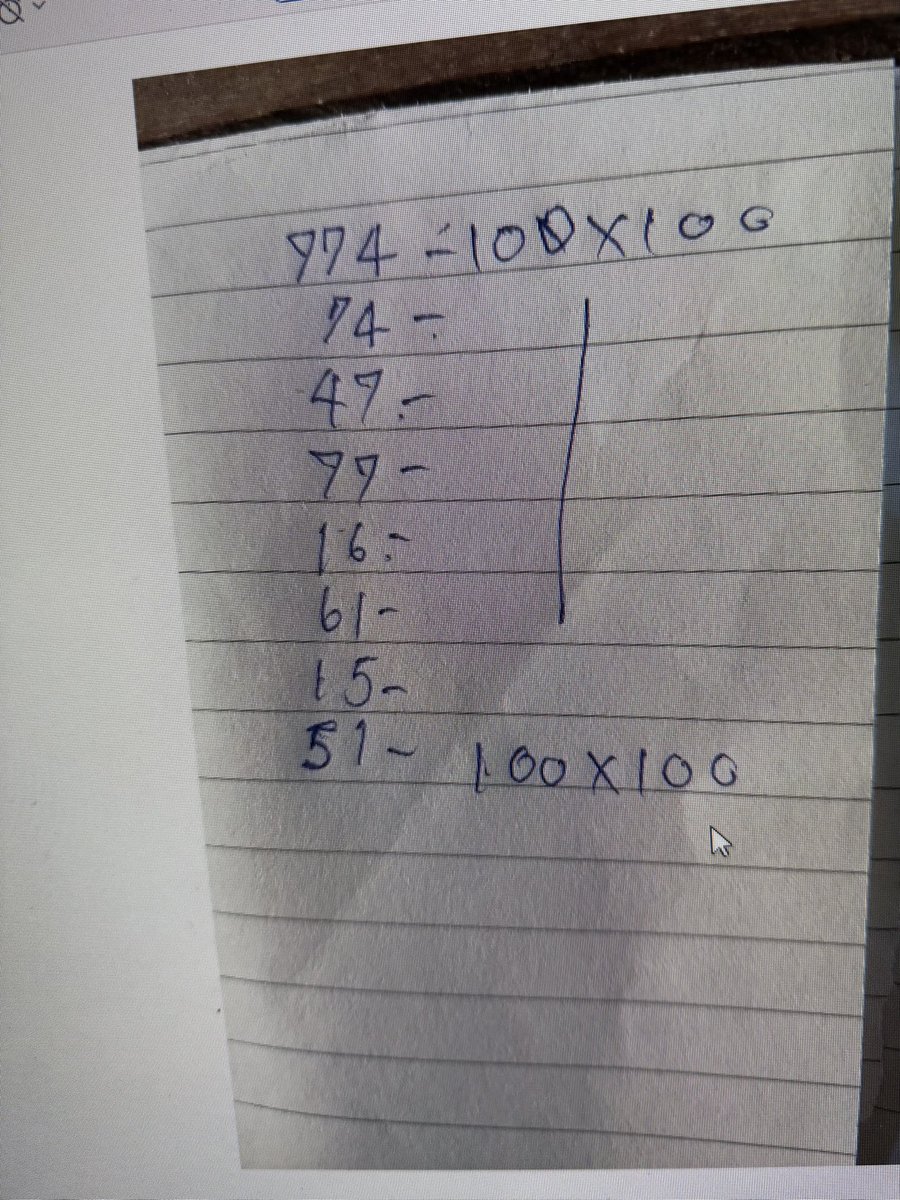 774 - 100X100
74 -
47 -
77 -
16 -
61 -
15 -
51 - 100X100